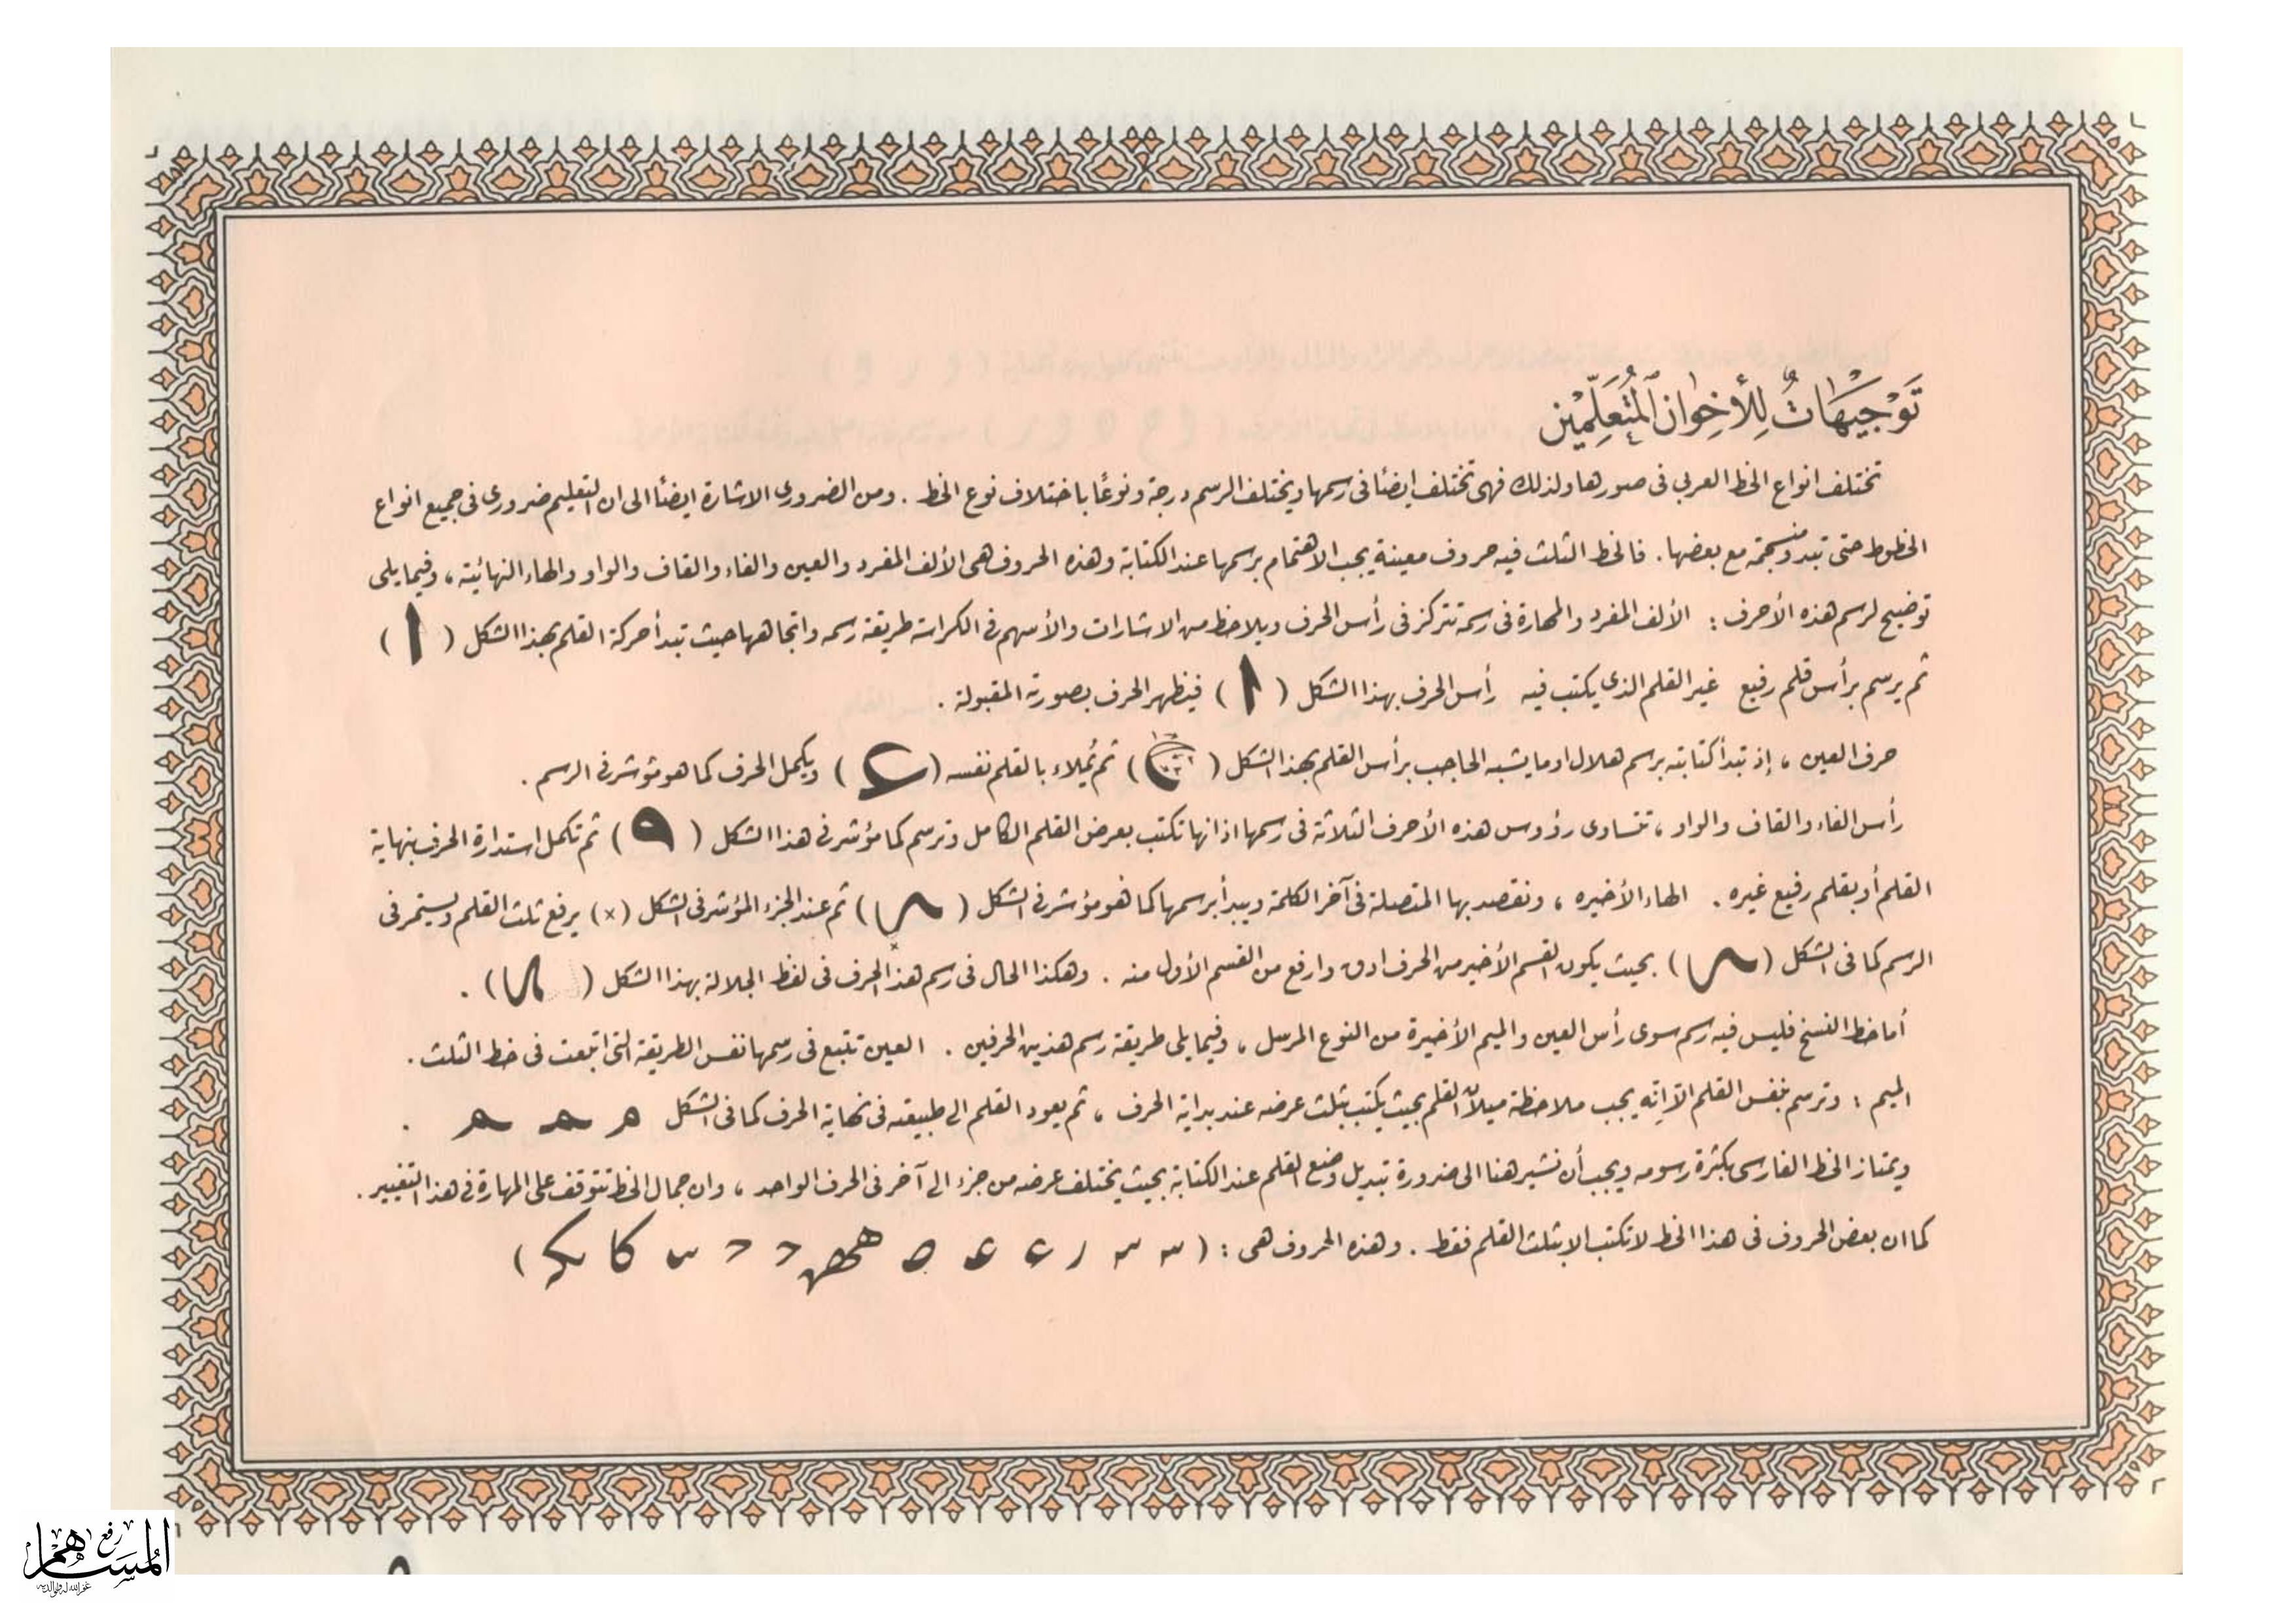 تَوْجِيْهَاتٌ لِلأخِوَانِ ٱلمُتَعَلِّمِيْن
تختلف انواع الخط العربي في صورها ولذلك فهي تختلف ايضًا في رسمها ويختلف الرسم درجة ونوعًا باختلاف نوع الخط . ومن الضروري الاشارة ايضًا الى ان التعليم ضروري في جميع انواع
الخطوط حتى تبدو منسجمة مع بعضها . فالخط الثلث فيه حروف معينة يجب الاهتمام برسمها عند الكتابة وهذه الحروف هي الألف المفرد والعين والفاء والقاف والواو والهاء النهائية ، وفيما يلي
توضيح لرسم هذه الأحرف : الألف المفرد والمهارة في رسمة تتركز في رأس الحرف ويلاحظ من الاشارات والأسهم في الكراسة طريقة رسمه واتجاهها حيث تبدأ حركة القلم بهذا الشكل ( ا )
ثم يرسم برأس قلم رفيع غير القلم الذي يكتب فيه رأس الحرف بهذا الشكل ( ا ) فيظهر الحرف بصورته المقبولة .
حرف العين ، إذ تبدأ كتابته برسم هلال او ما يشبه الحاجب برأس القلم بهذا الشكل ( ) ثم يُملاء بالقلم نفسه ( ع ) ويكمل الحرف كما هو مؤشر في الرسم .
رأس الفاء والقاف والواو ، تتساوى رؤوس هذه الأحرف الثلاثة في رسمها اذ انها تكتب بعرض القلم الكامل وترسم كما مؤشر في هذا الشكل ( ) ثم تكمل استدارة الحرف بنهاية
القلم أو بقلم رفيع غيره . الهاء الأخيره ، ونقصد بها المتصلة في آخر الكلمة ويبدأ برسمها كما هو مؤشر في الشكل ( ) ثم عند الجزء المؤشر في الشكل (×) يرفع ثلث القلم ويستمر في
الرسم كما في الشكل ( ) بحيث يكون القسم الأخير من الحرف ادق وارفع من القسم الأول منه . وهكذا الحال في رسم هذ الحرف في لفظ الجلالة بهذا الشكل ( ) .
أما خط النسخ فليس فيه رسم سوى رأس العين والميم الأخيرة من النوع المرسل ، وفيما يلي طريقة رسم هذين الحرفين . العين تتبع في رسمها نفس الطريقة التي اتبعت في خط الثلث .
الميم : وترسم بنفس القلم الاّ إنّه يجب ملاحظة ميلان القلم بحيث يكتب بثلث عرضه عند بداية الحرف ، ثم يعود القلم الى طبيعته في نهاية الحرف كما في الشكل م م م .
ويمتاز الخط الفارسي بكثرة رسومه ويجب أن نشير هنا الى ضرورة تبديل وضع القلم عند الكتابة بحيث يختلف عرضه من جزء الى آخر في الحرف الواحد ، وان جمال الخط تتوقف على المهارة في هذا التغيير .
كما ان بعض الحروف في هذا الخط لا تكتب الا بثلث القلم فقط . وهذه الحروف هي : ( )
رفع
المساهم
غفر الله له ولوالديه